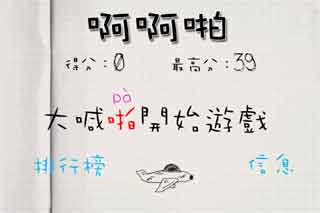 啊啊啪
得分:0 最高分:39
pò
大喊啪開始遊戲
排行榜 信息